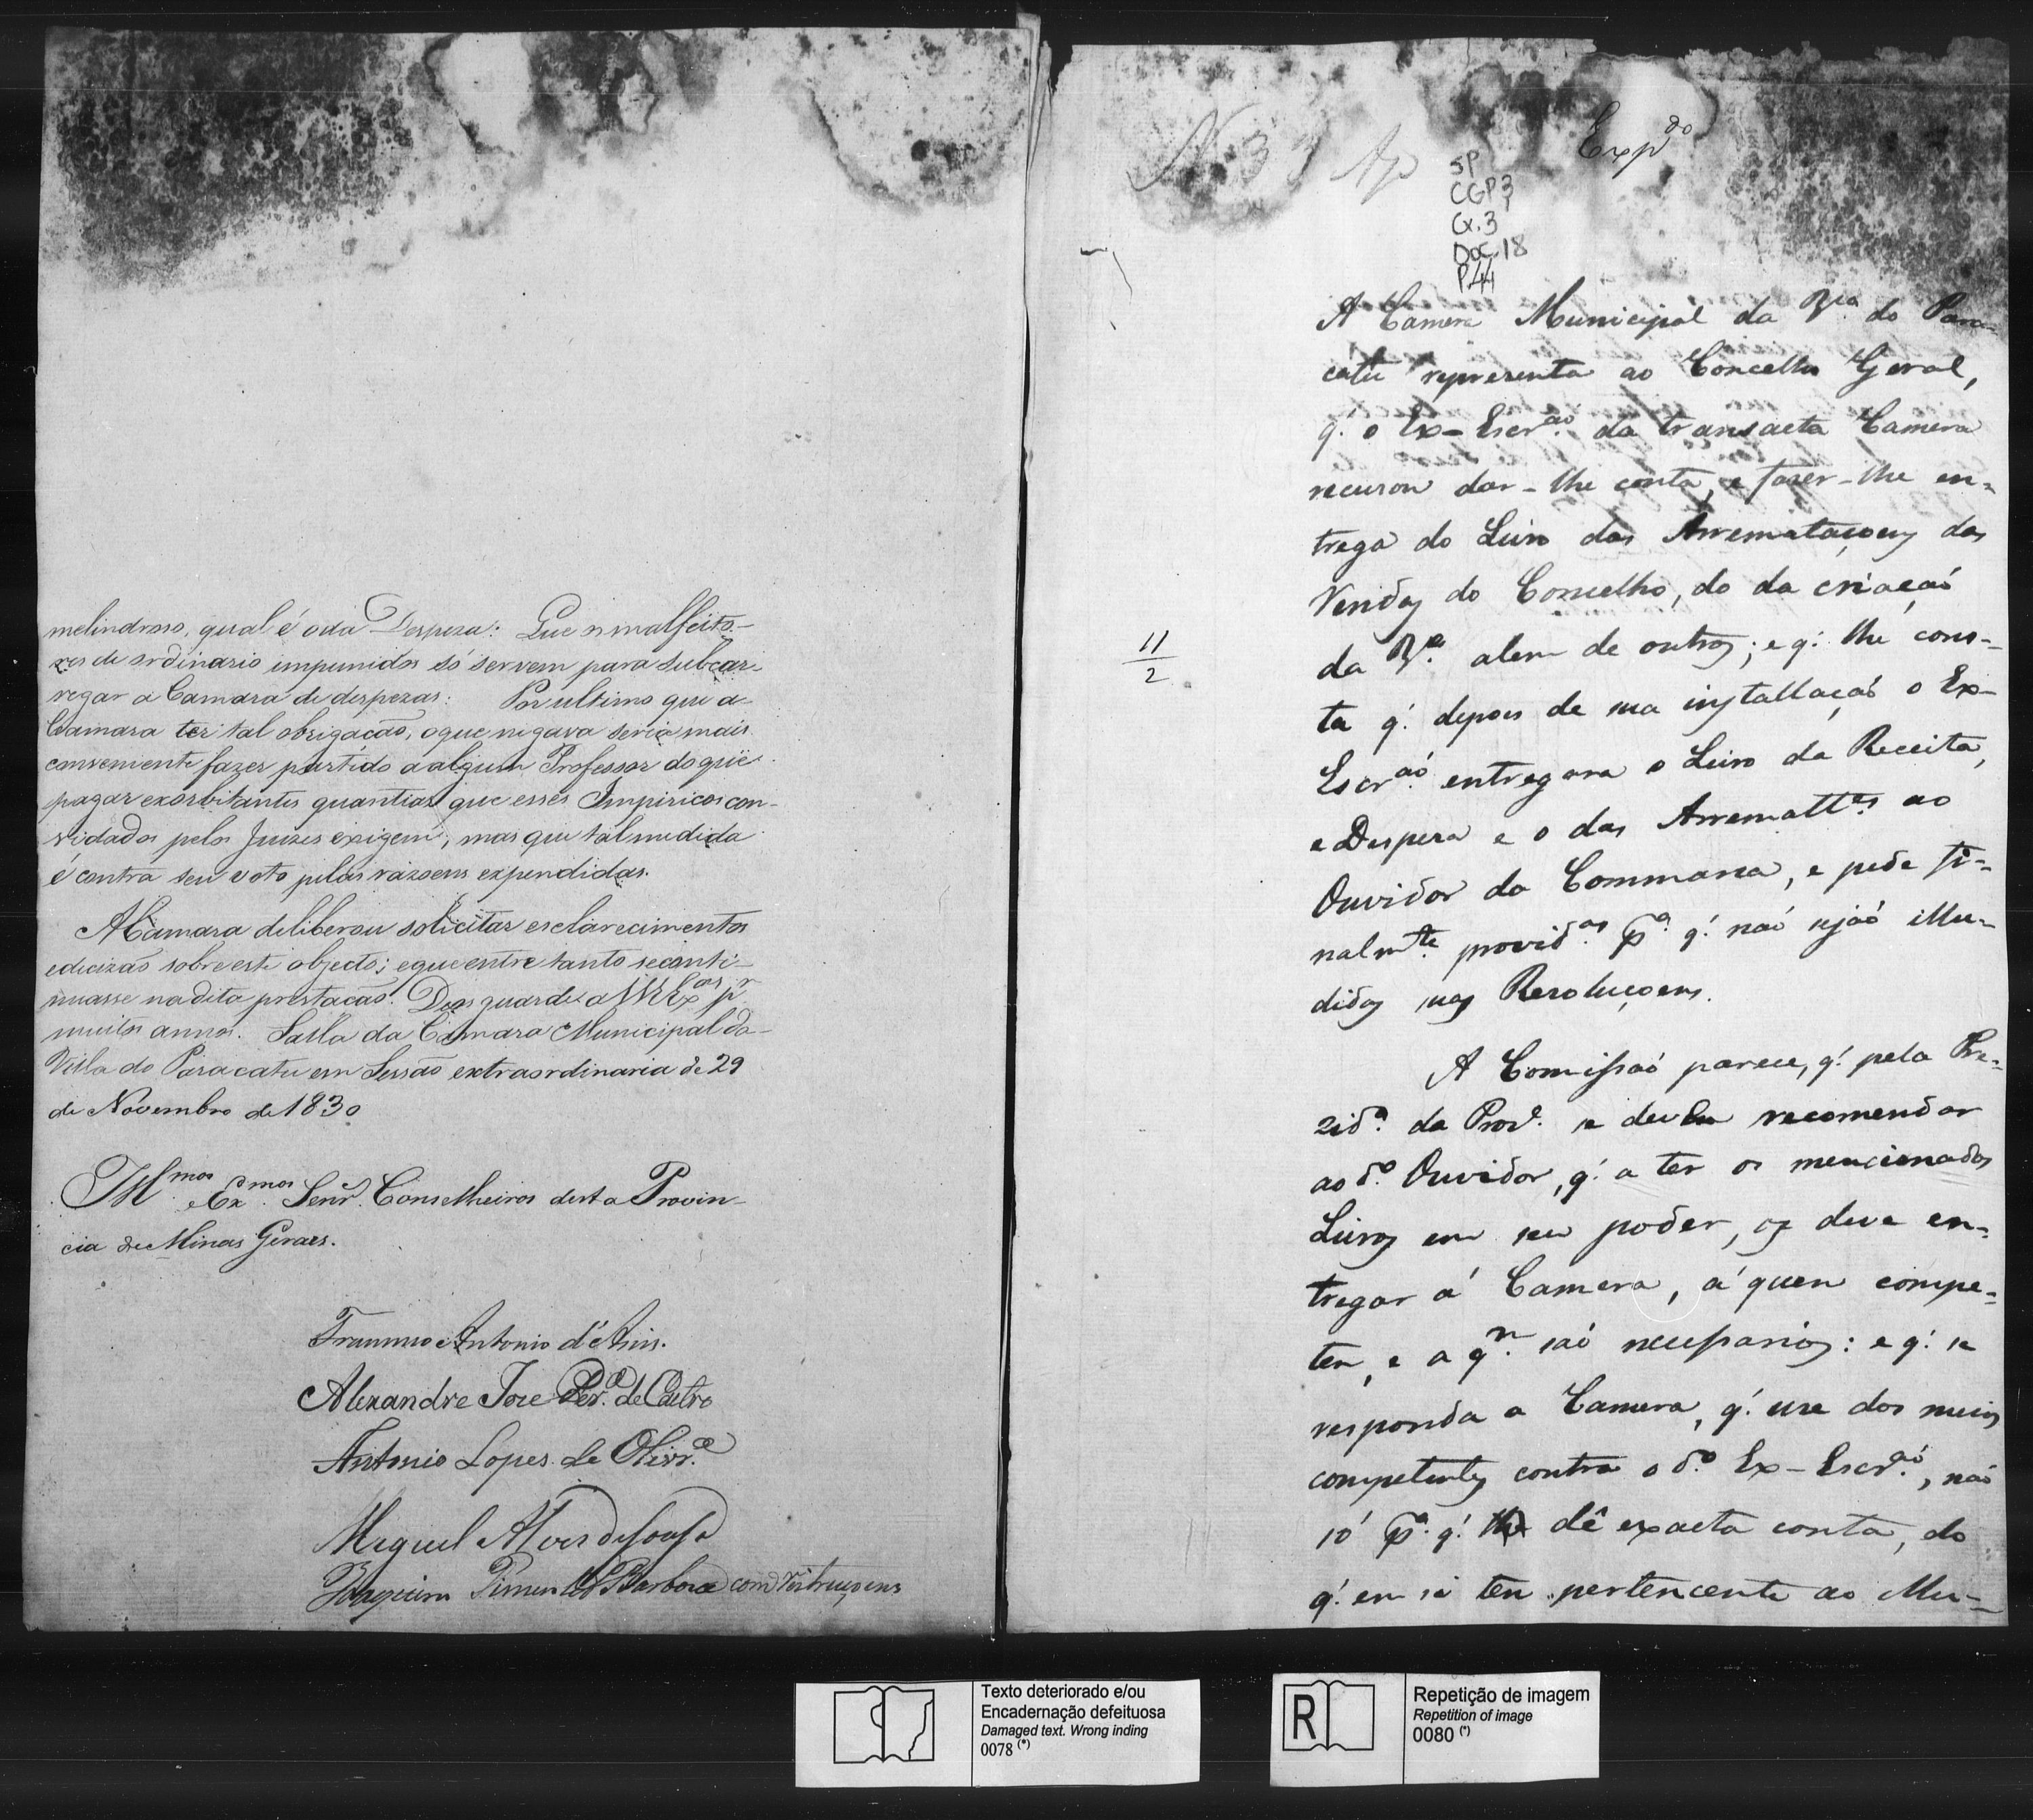 melindroso, qual é o da Despeza: Que os malfeito-
res de ordinario impunidos só servem para subcar-
regar a Camara de despezas: Por ultimo que a
Camara ter tal obrigação, o que negava seria mais
conveniente fazer partido a algum Professor do que
pagar exorbitantes quantias que esses Impiricos con-
vidados pelos Juizes exigem, mas que tal medida
é contra seu voto pelas razoens expendidas.
A Camara deliberou solicitar esclarecimentos
e decizão sobre este objecto; e que entre tanto se conti-
nuasse na dita prestação. Deos guarde a VV. Ex.as p.r
muitos annos. Salla da Camara Municipal da
Villa do Paracatu em Sessão extraordinaria de 29
de Novembro de 1830
Ill.mos e Ex.mos Senr. Conselheiros desta Provin-
cia de Minas Geraes.
Francisco Antonio d'Assis.
Alexandre Joze Per.a de Castro
Antonio Lopes de Olivr.a
Miguel Alves de Souza
Joaquim Pimentel Barboza com restriçoens
N. 3 Ap
Exp.do
SP
CGP3
Cx.3
Doc.18
P.44
A Camera Municipal da V.a do Para-
catú representa ao Concelho Geral,
q.' o Ex-Escr.aó da transacta Camera
recusou dar-lhe conta, e fazer-lhe en-
trega do Livro das Arremataçoens das
Vendas do Concelho, do da criaçaó
da V.a alem de outros; e q.' lhe cons-
11
2
ta q.' depois de sua installaçaó o Ex-
Escr.aó entregara o Livro da Receita,
e Despeza e o das Arrematt.es ao
Ouvidor da Commarca, e pede fi-
nalm.te provid.as p.a q.' naó sejaó illu-
didas suas Resoluçoens.
A Comissaó parece, q.' pela Pre-
zid.a da Prov.a se deve recomendar
ao d.o Ouvidor, q.' a ter os mencionados
Livros em seu poder, os deve en-
tregar á Camera, á quem compe-
tem, e a q.m saó necessarios: e q.' se
responda a Camera, q.' use dos meios
competentes contra o d.o Ex-Escr.aó, naó
só p.a q.' dê exacta conta, do
q.' em si tem pertencente ao Mu-
Texto deteriorado e/ou
Encadernação defeituosa
Damaged text. Wrong inding
0078 (*)
R
Repetição de imagem
Repetition of image
0080 (*)